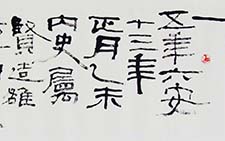 一
五年六安
十三年
正月乙未
内史屬
賢造雒